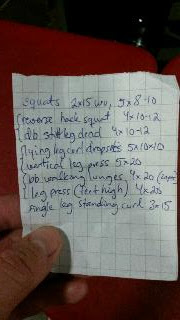 squats 2x15 wu, 5x8-10
reverse hack squat 4x10-12
db stiff leg dead 4x10-12
lying leg curl dropsets 5x10x10
vertical leg press 5x20
bb walking lunges 4x20
leg press (feet high) 4x20
single leg standing curl 3x15